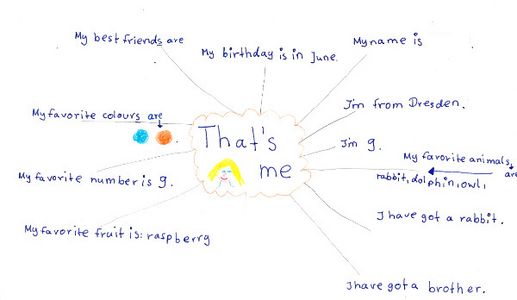 My best friends are
My birthday is in June.
My name is
My favorite colours are
I'm from Dresden.
I'm 9.
That's
me
My favorite animals are
rabbit, dolphin, owl,
My favorite number is 9.
I have got a rabbit.
My favorite fruit is: raspberry
I have got a brother.